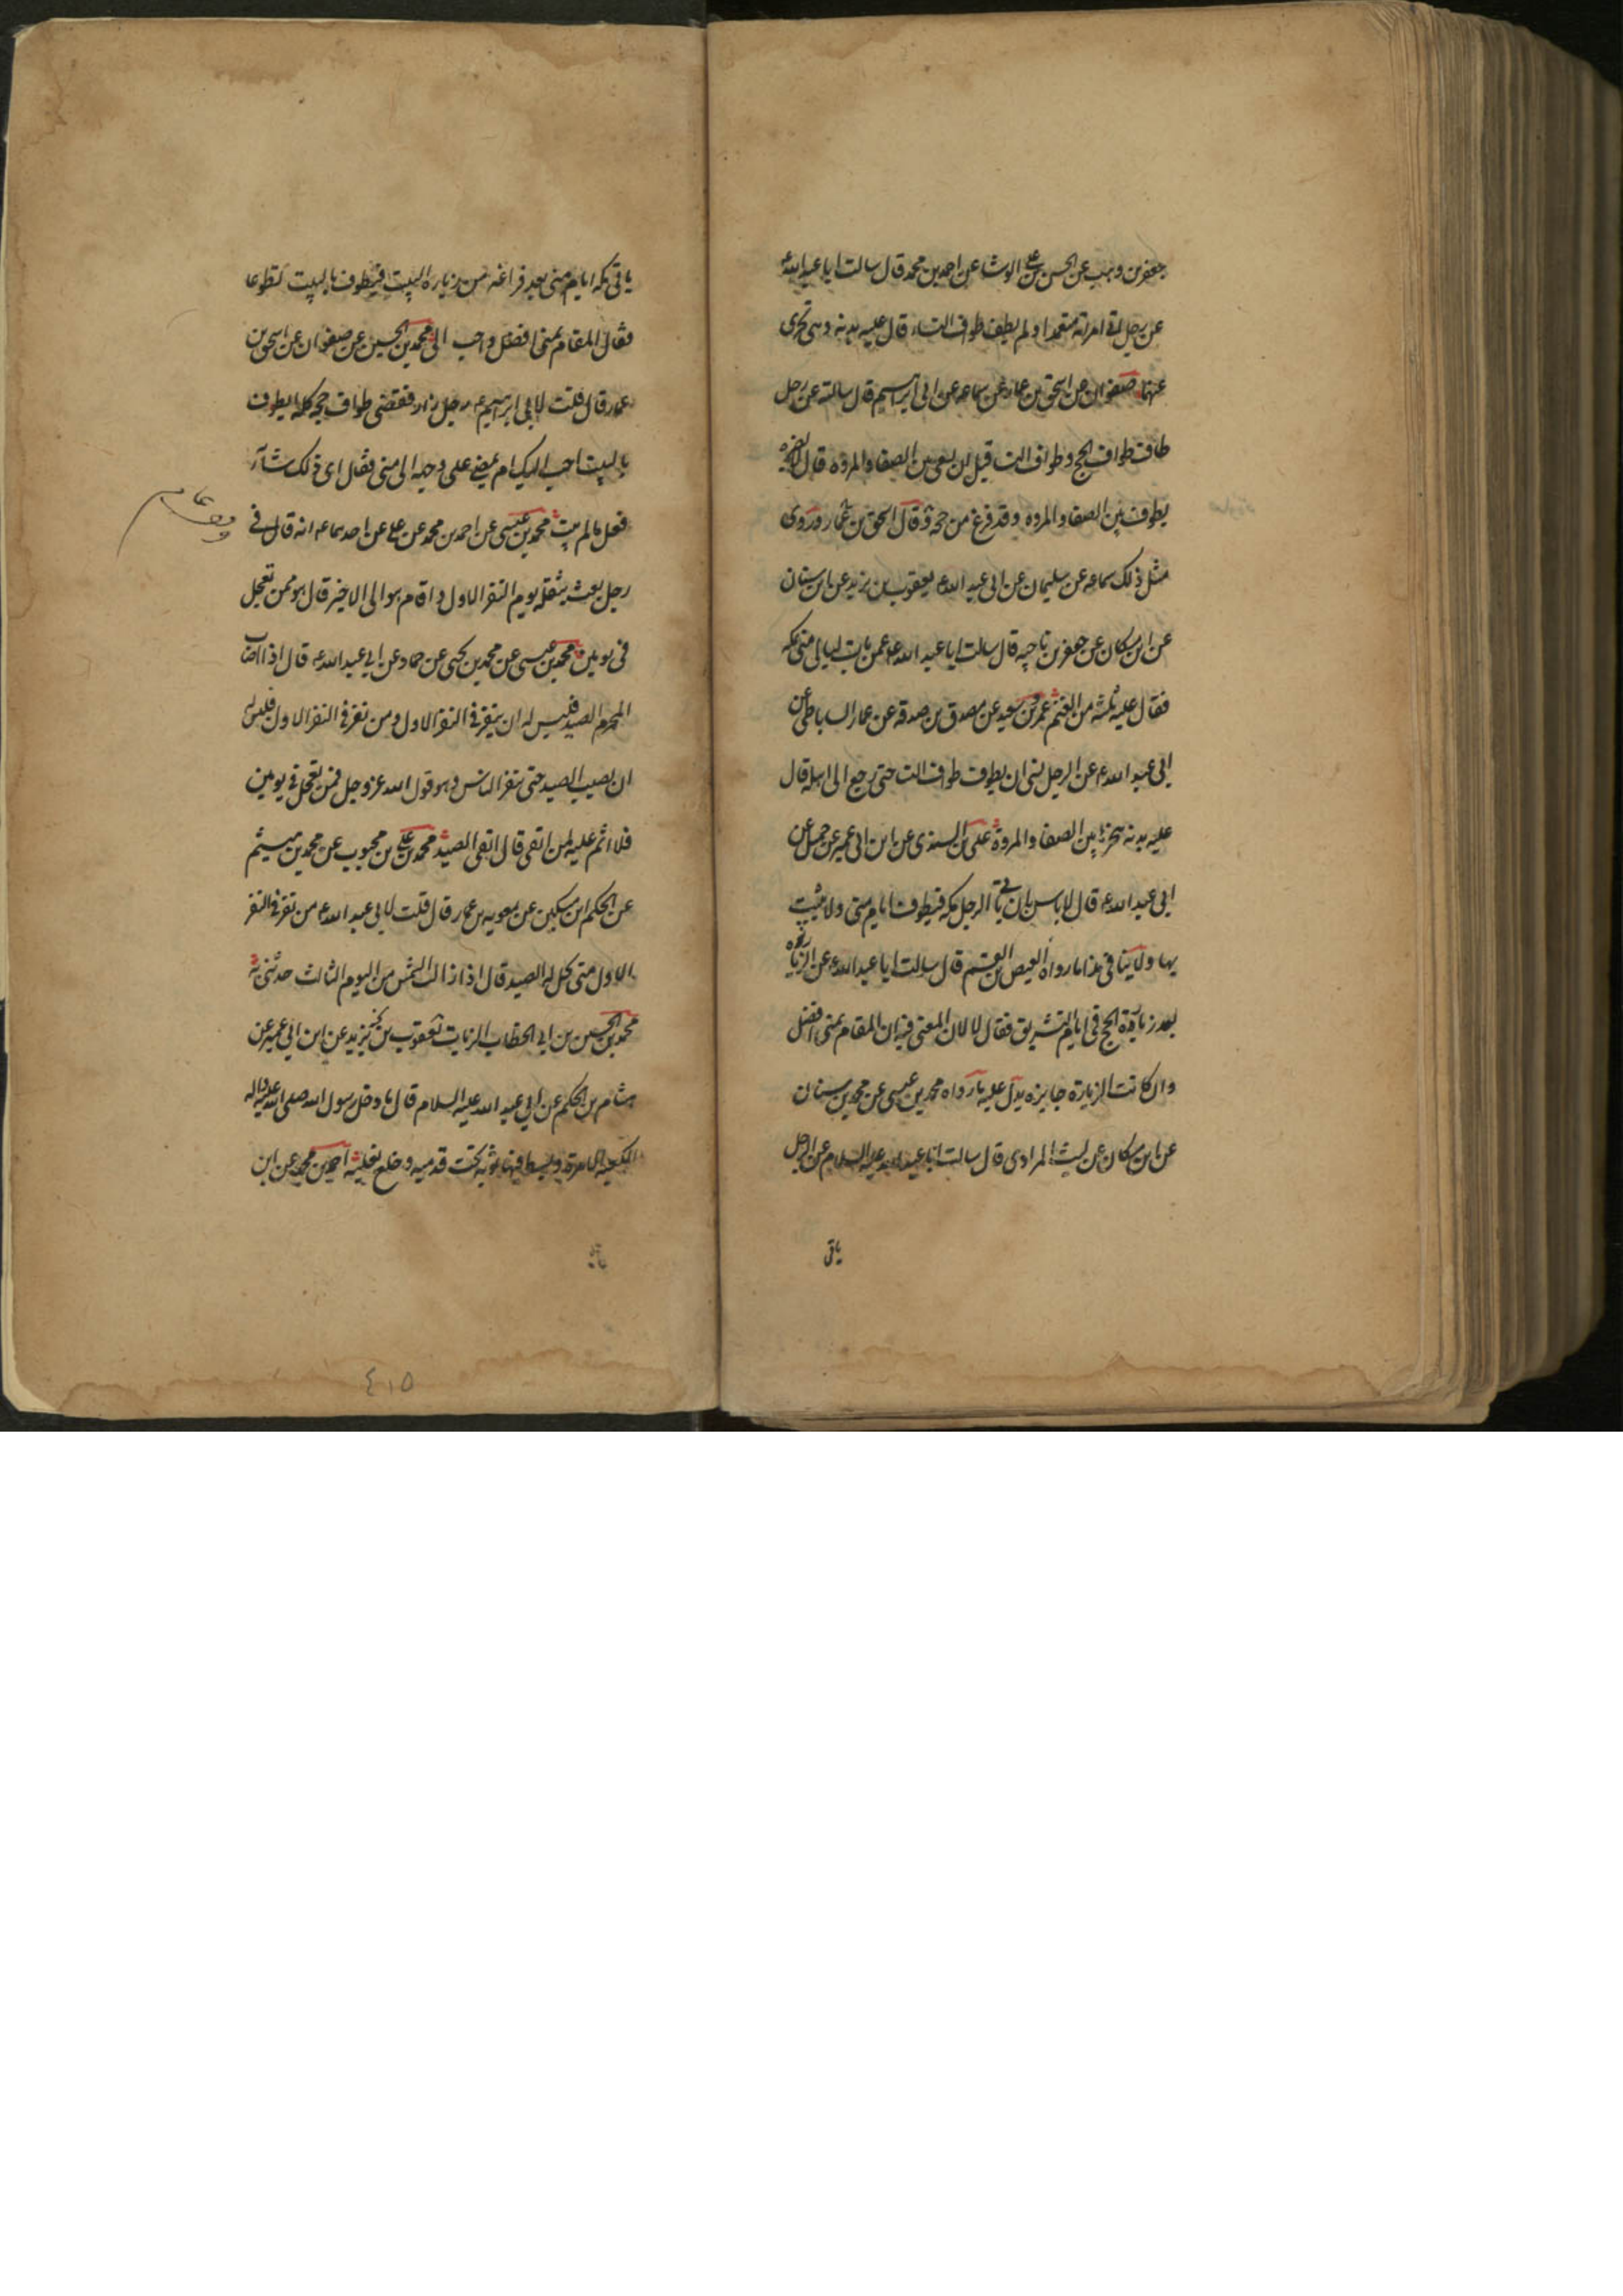 جعفر بن وهب عن الحسن بن علي الوشا عن احمد بن محمد قال سالت ابا عبد الله ع
عن رجل اتى امراته متعمدا ولم يطف طواف النساء قال عليه بدنه وهى تجزى
عنها صفوان عن اسحق بن عمار عن سماعه عن ابى ابراهيم قال سالته عن رجل
طاف طواف الحج وطواف النسا قبل ان يسعى بين الصفا والمروه قال لا يضره
يطوف بين الصفا والمروه وقد فرغ من حجه وقال اسحق بن عمار وروى
مثل ذلك سماعه عن سليمان عن ابى عبد الله ع يعقوب بن يزيد عن ابن سنان
عن ابن مسكان عن جعفر بن ناجيه قال سالت ابا عبد الله ع عمن بات ليالى منى بمكه
فقال عليه ثلثه من الغنم عمرو بن سعيد عن مصدق بن صدقه عن عمار الساباطى عن
ابى عبد الله ع عن الرجل نسى ان يطوف طواف النسا حتى رجع الى اهله قال
عليه بدنه ينحرها بين الصفا والمروة على بن السندى عن ابن ابى عمير عن جميل عن
ابى عبد الله ع قال لا باس ان ياتى الرجل مكه فيطوف ايام منى ولا يبيت
بها ولا ينافى هذا ما رواه العيص بن القسم قال سالت ابا عبد الله ع عن الزياره
بعد زيارة الحج فى ايام التشريق فقال لا لان المعنى فيه ان المقام بمنى افضل
وان كانت الزيارة جايزه يدل عليه ما رواه محمد بن عيسى عن محمد بن سنان
عن ابن مسكان عن ليث المرادى قال سالت ابا عبد الله عليه السلام عن الرجل
ياتى
ياتى مكه ايام منى بعد فراغه من زياره البيت فيطوف بالبيت تطوعا
فقال المقام بمنى افضل واحب الى محمد بن الحسين عن صفوان عن اسحق بن
عمار قال قلت لابى ابراهيم ع رجل زار فقضى طواف حجه كله ايطوف
بالبيت احب اليك ام يمضى على وجهه الى منى فقال اى ذلك شاء
فعل ما لم يبت محمد بن عيسى عن احمد بن محمد عن على عن احدهما ع انه قال فى
رجل بعث بثقله يوم النفر الاول واقام هو الى الاخير قال هو ممن تعجل
فى يومين محمد بن عيسى عن محمد بن يحيى عن حماد عن ابى عبد الله ع قال اذا اصاب
المحرم الصيد فليس له ان ينفر فى النفر الاول ومن نفر فى النفر الاول فليس له
ان يصيب الصيد حتى ينفر الناس وهو قول الله عز وجل فمن تعجل فى يومين
فلا اثم عليه لمن اتقى قال اتقى الصيد محمد بن على بن محبوب عن محمد بن ميثم
عن الحكم ابن مسكين عن معويه بن عمار قال قلت لابى عبد الله ع من نفر فى النفر
الاول متى يحل له الصيد قال اذا زالت الشمس من اليوم الثالث حدثنى
محمد بن الحسين بن ابى الخطاب الزيات يعقوب بن يزيد عن ابن ابى عمير عن
هشام بن الحكم عن ابى عبد الله عليه السلام قال ما دخل رسول الله صلى الله عليه واله
الكعبه الا مرة وبسط فيها ثوبه تحت قدميه وخلع نعليه احمد بن محمد عن ابن
٤١٥